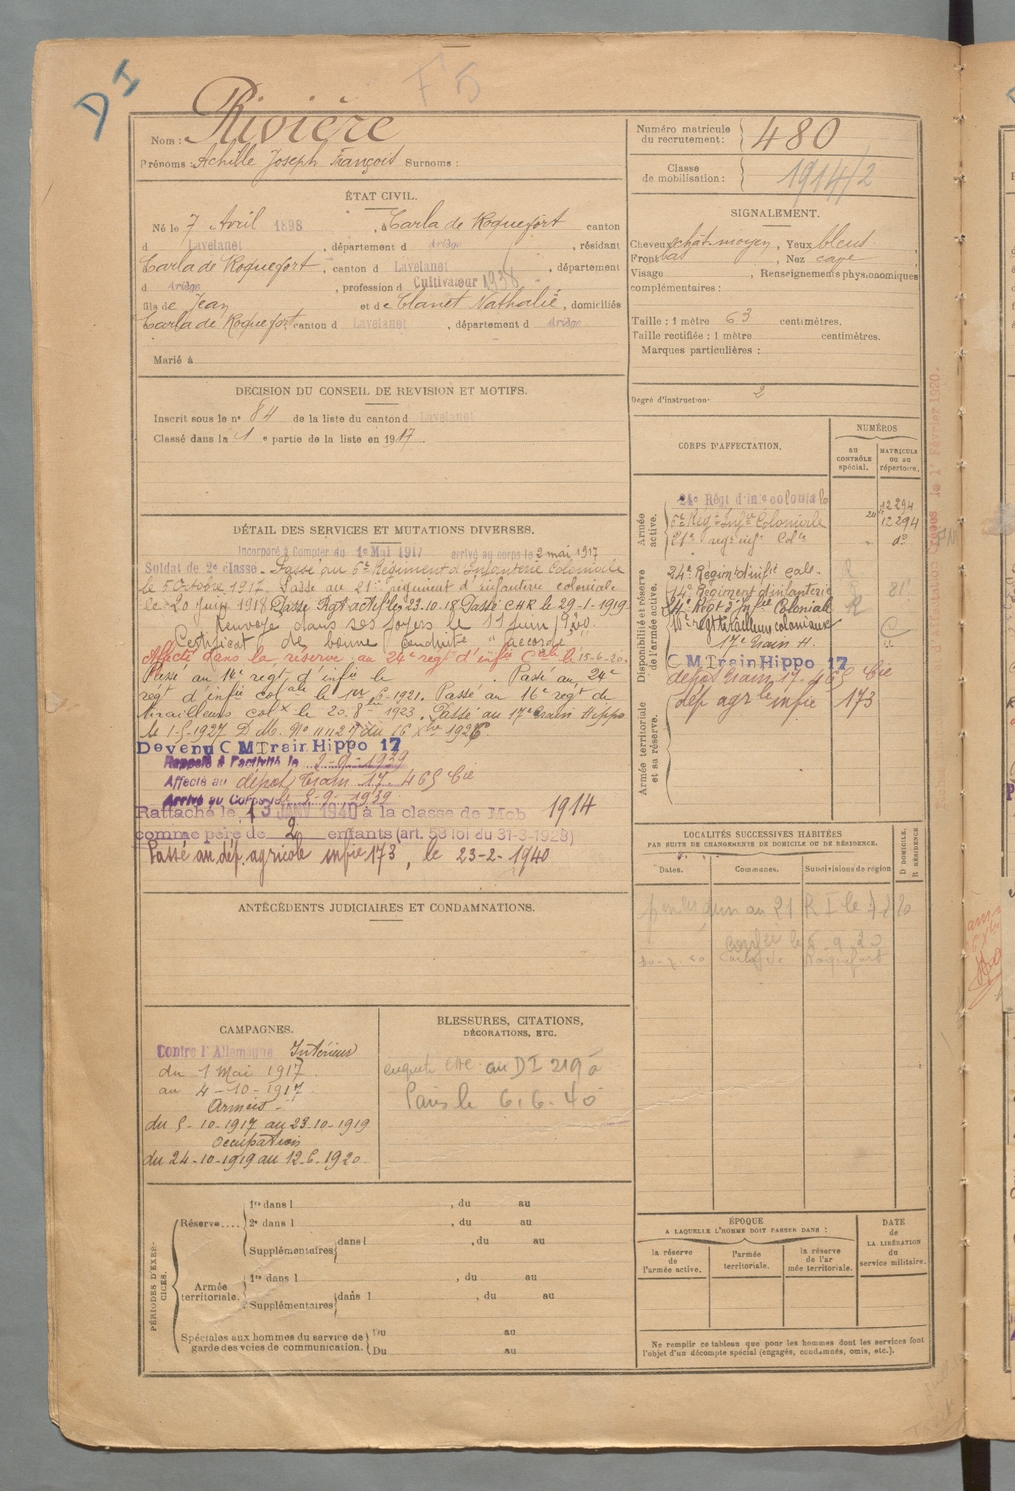 D I
F 5
Nom : Rivière
Prénoms : Achille Joseph François Surnoms :
Numéro matricule du recrutement : 480
Classe de mobilisation : 1914/2
ÉTAT CIVIL.
Né le 7 Avril 1898, à Carla de Roquefort canton
d Lavelanet, département d Ariège, résidant
Carla de Roquefort, canton d Lavelanet, département
d Ariège, profession d Cultivateur 1938
fils de Jean et de Clanet Nathalie, domiciliés
Carla de Roquefort canton d Lavelanet, département d Ariège
Marié à
SIGNALEMENT.
Cheveux chât-moyen, Yeux bleus
Front bas, Nez cave
Visage , Renseignements physionomiques
complémentaires :
Taille : 1 mètre 63 centimètres.
Taille rectifiée : 1 mètre centimètres.
Marques particulières :
Degré d'instruction : 2
DÉCISION DU CONSEIL DE REVISION ET MOTIFS.
Inscrit sous le n° 84 de la liste du canton d Lavelanet
Classé dans la 1 e partie de la liste en 1917
DÉTAIL DES SERVICES ET MUTATIONS DIVERSES.
Incorporé à Compter du 1er Mai 1917 arrivé au corps le 2 mai 1917
Soldat de 2e classe. Passé au 5e Régiment d'Infanterie Coloniale
le 5 Octobre 1917. Passé au 21e régiment d'infanterie coloniale
le 20 Juin 1918 Passé Rgt actif le 23.10.18 Passé CHR le 29-1-1919
Renvoyé dans ses foyers le 11 juin 1920.
Certificat de bonne conduite "accordé"
Affecté dans la réserve au 24e regt d'infie Cale le 15-6-20.
Passé au 14e regt d'infie le . Passé au 24e
régt d'infie colale le 1er 6-1921. Passé au 16e regt de
tirailleurs colx le 20.8bre 1923. Passé au 17e Train Hippo
le 1-5-1927 D.M. No 11112 7 du 16 Xbre 1926.
Devenu C M Train Hippo 17
Rappelé à l'activité le 2-9-1939
Affecté au dépôt Train 17. 465 Cie
Arrivé au Corps le 5-9-1939
Rattaché le 13 JANV 1940 à la classe de Mob 1914
comme père de 2 enfants (art. 58 loi du 31-3-1928)
Passé au dép. agricole infie 173, le 23-2-1940
CORPS D'AFFECTATION.
NUMÉROS
AU CONTRÔLE spécial.
MATRICULE OU AU répertoire.
Armée active.
24e Régt d'Infie coloniale 12294
5e Régt Infie Coloniale 12294
21e régt inf Cole do
Disponibilité et réserve de l'armée active.
24e Régimt d'infie cole
14e Régiment d'infanterie 81
24e Régt d'Infie Coloniale R
16e régt tirailleurs coloniaux
17e Train H.
C M Train Hippo 17
dépôt Train 17. 465 Cie
Dép agrle infie 173
Armée territoriale et sa réserve.
LOCALITÉS SUCCESSIVES HABITÉES
PAR SUITE DE CHANGEMENTS DE DOMICILE OU DE RÉSIDENCE.
Dates. Communes. Subdivisions de région
D DOMICILE, R RÉSIDENCE
au 21 R I le
le 5-9-20
Roquefort
ANTÉCÉDENTS JUDICIAIRES ET CONDAMNATIONS.
CAMPAGNES.
Contre l'Allemagne Intérieur
du 1 Mai 1917
au 4-10-1917
Armées
du 5-10-1917 au 23-10-1919
Occupation
du 24-10-1919 au 12-6-1920
BLESSURES, CITATIONS,
DÉCORATIONS, ETC.
au DI 219
Paris le 6.6.40
PÉRIODES D'EXERCICES.
Réserve.... 1re dans l , du au
2e dans l , du au
Supplémentaires dans l , du au
Armée territoriale. 1re dans l , du au
Supplémentaires dans l , du au
Spéciales aux hommes du service de garde des voies de communication. Du au
Du au
ÉPOQUE
A LAQUELLE L'HOMME DOIT PASSER DANS :
la réserve de l'armée active.
l'armée territoriale.
la réserve de l'armée territoriale.
DATE de LA LIBÉRATION du service militaire.
Ne remplir ce tableau que pour les hommes dont les services font
l'objet d'un décompte spécial (engagés, condamnés, omis, etc.).